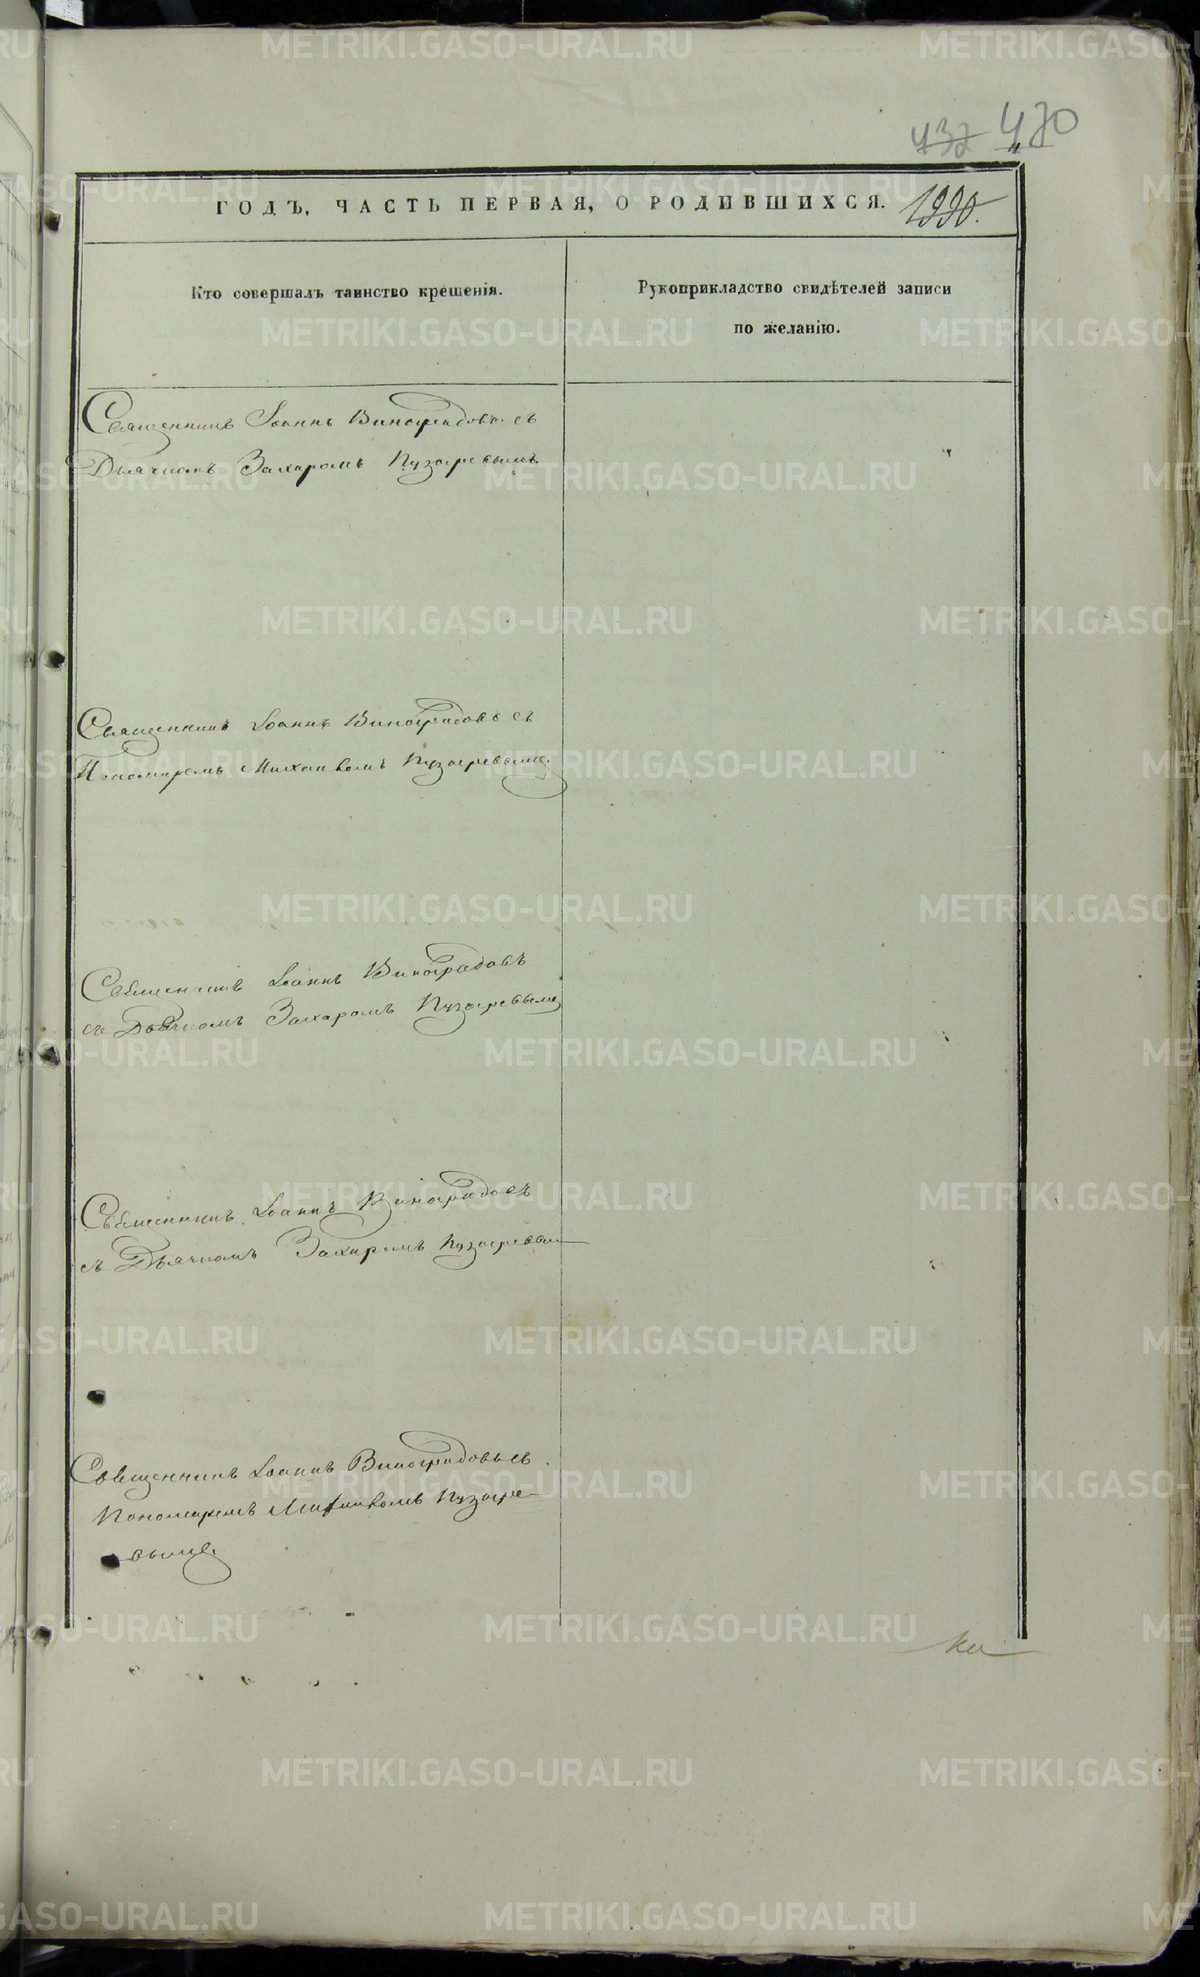 437 470
ГОДЪ, ЧАСТЬ ПЕРВАЯ, О РОДИВШИХСЯ. 1990.
Кто совершалъ таинство крещенія.
Рукоприкладство свидѣтелей записи
по желанію.
Священникъ Іоаннъ Виноградовъ съ
Дьячкомъ Захаромъ Пузыревымъ
Священникъ Іоаннъ Виноградовъ съ
Пономаремъ Михаиломъ Пузыревымъ
Священникъ Іоаннъ Виноградовъ
съ Дьячкомъ Захаромъ Пузыревымъ
Священникъ Іоаннъ Виноградовъ
съ Дьячкомъ Захаромъ Пузыревым
Священникъ Іоаннъ Виноградовъ съ
Пономаремъ Михаиломъ Пузыре-
вымъ
METRIKI.GASO-URAL.RU